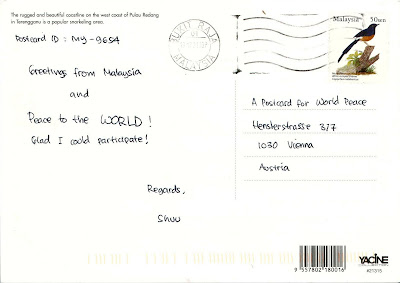 The rugged and beautiful coastline on the west coast of Pulau Redang
in Terengganu is a popular snorkeling area.
Postcard ID : MY-9654
Greetings from Malaysia
and
Peace to the WORLD !
Glad I could participate!
Regards,
Shuu
BUKIT RAJA
MALAYSIA
Malaysia
50sen
A Postcard for World Peace
Henslerstrasse 3/7
1030 Vienna
Austria
9 557802 180016
YACINE